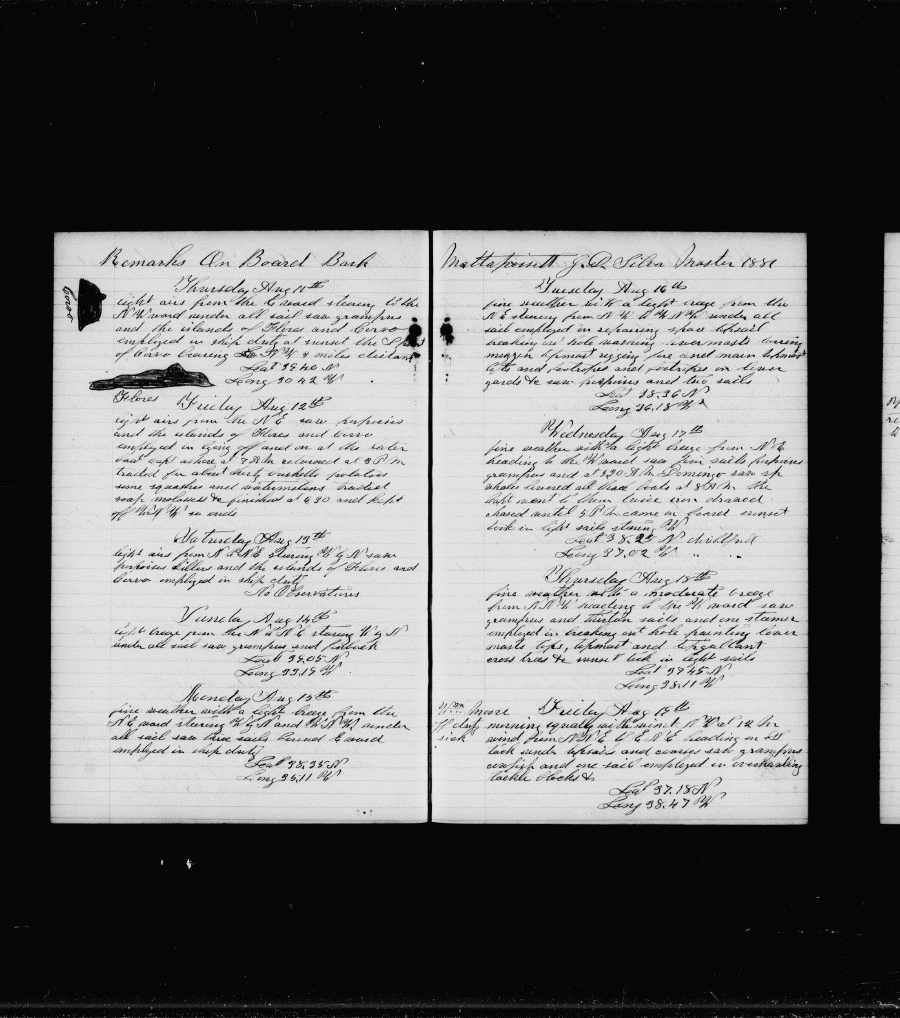 Remarks On Board Bark
Thursday Aug 11th
light airs from the E ward stearing to the
N W ward under all sail saw grampus
and the islands of Flores and Corvo
employed in ship duty at sunset the
of Corvo bearing N W 4 miles distant
Lat 39.40 N
Long 30.42 W
Corvo
Flores
Friday Aug 12th
light airs from the N E saw porpoises
and the islands of Flores and Corvo
employed in lying off and on at the
boat capt ashore at 7 A M returned at 3 P M
traded for about thirty bushells potatoes
some squashes and watermelons traded
soap molasses & finished at 6 30 and kept
off W N W so ends
Saturday Aug 13th
light airs from N N E stearing W by N saw
porpoises killers and the islands of Flores and
Corvo employed in ship duty
No Observations
Sunday Aug 14th
light breeze from the N N E stearing W by N
under all sail saw grampus and finback
Lat 39.05 N
Long 33.19 W
Monday Aug 15th
fine weather with a light breeze from the
N E ward stearing W by N and W N W under
all sail saw three sails bound E ward
employed in ship duty
Lat 38.35 N
Long 35.11 W
Mattapoisett J. D. Silva Master 1881
Tuesday Aug 16th
fine weather with a light breeze from the
N E stearing from N W to W N W under all
sail employed in repairing spare topsail
breaking out hole washing overmasts
mizzen topmast rigging fore and main topmast
and footropes and on lower
yards &c saw porpoises and two sails
Lat 38.36 N
Long 36.18 W
Wednesday Aug 17th
fine weather with a light breeze from N E
heading to the W ward saw four sails porpoises
grampus and at 7.20 A M Domingo saw sp
whales lowered all three boats at 8 A M the
capt went to them twice iron drawed
chased until 5 P M came on board sunset
took in light sails stearing W
Lat 38.25 N
Long 37.02 W
Thursday Aug 18th
fine weather with a moderate breeze
from N N W heading to the W ward saw
grampus and thirteen sails and one steamer
employed in breaking out hole painting lower
masts tops, topmast and topgallant
cross trees &c sunset took in light sails
Lat 37.45 N
Long 38.11 W
Wm Moore
off duty
sick
Friday Aug 19th
morning squally with wind N W at 12 M
wind from N N E to E N E heading on
tack under topsails and courses saw grampus
cowfish and one sail employed in overhauling
tackle blocks &
Lat 37.18 N
Long 38.47 W